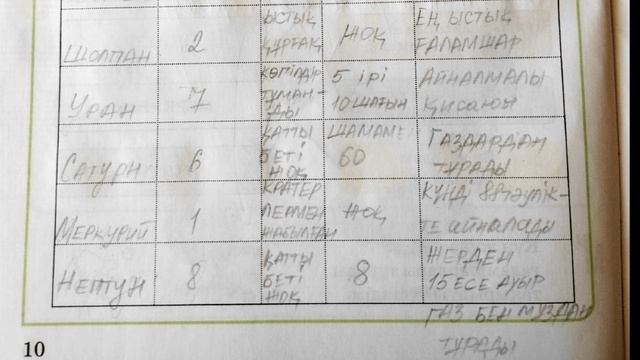 ШОЛПАН 2 ЫСТЫҚ ҚҰРҒАҚ ЖОҚ ЕҢ ЫСТЫҚ ҒАЛАМШАР
УРАН 7 КӨГІЛДІР ТҰМАН-ДЫ 5 ІРІ 10 ШАҒЫН АЙНАЛМАЛЫ ҚИСАЮЫ
САТУРН 6 ҚАТТЫ БЕТІ ЖОҚ ШАМАМЕН 60 ГАЗДАРДАН ТҰРАДЫ
МЕРКУРИЙ 1 КРАТЕР ЛЕРМЕН ЖАБЫЛҒАН ЖОҚ КҮНДІ 88 ТӘУЛІК-ТЕ АЙНАЛАДЫ
НЕПТУН 8 ҚАТТЫ БЕТІ ЖОҚ 8 ЖЕРДЕН 15 ЕСЕ АУЫР
ГАЗ БЕН МҰЗДАН
ТҰРАДЫ
10